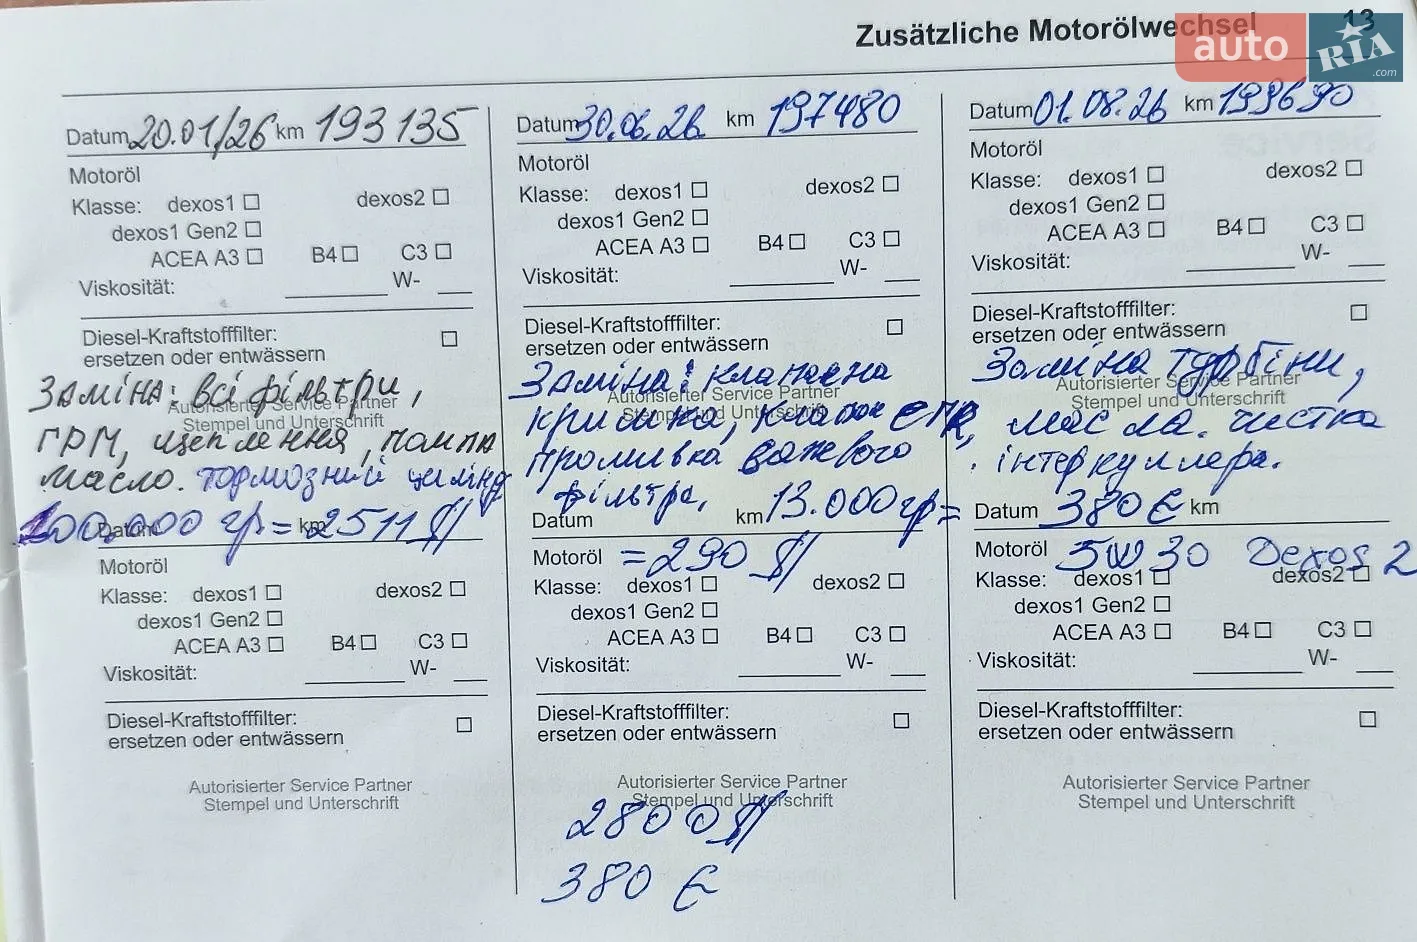 Zusätzliche Motorölwechsel 13
auto RIA .com
Datum 20.01/26 km 193135
Motoröl
Klasse: dexos1 ☐ dexos2 ☐
dexos1 Gen2 ☐
ACEA A3 ☐ B4 ☐ C3 ☐
Viskosität: W-
Diesel-Kraftstofffilter: ☐
ersetzen oder entwässern
Заміна: всі фільтри,
Autorisierter Service Partner
Stempel und Unterschrift
ГРМ, щеплення, помпа
масло. тормозний цилінд
Datum km
100.000 гр = 2511 $
Motoröl
Klasse: dexos1 ☐ dexos2 ☐
dexos1 Gen2 ☐
ACEA A3 ☐ B4 ☐ C3 ☐
Viskosität: W-
Diesel-Kraftstofffilter: ☐
ersetzen oder entwässern
Autorisierter Service Partner
Stempel und Unterschrift
Datum 30.06.26 km 197480
Motoröl
Klasse: dexos1 ☐ dexos2 ☐
dexos1 Gen2 ☐
ACEA A3 ☐ B4 ☐ C3 ☐
Viskosität: W-
Diesel-Kraftstofffilter: ☐
ersetzen oder entwässern
Заміна: клапана
Autorisierter Service Partner
Stempel und Unterschrift
кришка, клапан ЄГР,
промивка сажевого
фільтра,
Datum km 13.000 гр =
Motoröl = 290 $
Klasse: dexos1 ☐ dexos2 ☐
dexos1 Gen2 ☐
ACEA A3 ☐ B4 ☐ C3 ☐
Viskosität: W-
Diesel-Kraftstofffilter: ☐
ersetzen oder entwässern
Autorisierter Service Partner
Stempel und Unterschrift
2800 $
380 €
Datum 01.08.26 km 199690
Motoröl
Klasse: dexos1 ☐ dexos2 ☐
dexos1 Gen2 ☐
ACEA A3 ☐ B4 ☐ C3 ☐
Viskosität: W-
Diesel-Kraftstofffilter: ☐
ersetzen oder entwässern
Заміна турбіни,
Autorisierter Service Partner
Stempel und Unterschrift
масла. чистка
інтеркуллера.
Datum 380 € km
Motoröl 5W30 Dexos 2
Klasse: dexos1 ☐ dexos2 ☐
dexos1 Gen2 ☐
ACEA A3 ☐ B4 ☐ C3 ☐
Viskosität: W-
Diesel-Kraftstofffilter: ☐
ersetzen oder entwässern
Autorisierter Service Partner
Stempel und Unterschrift